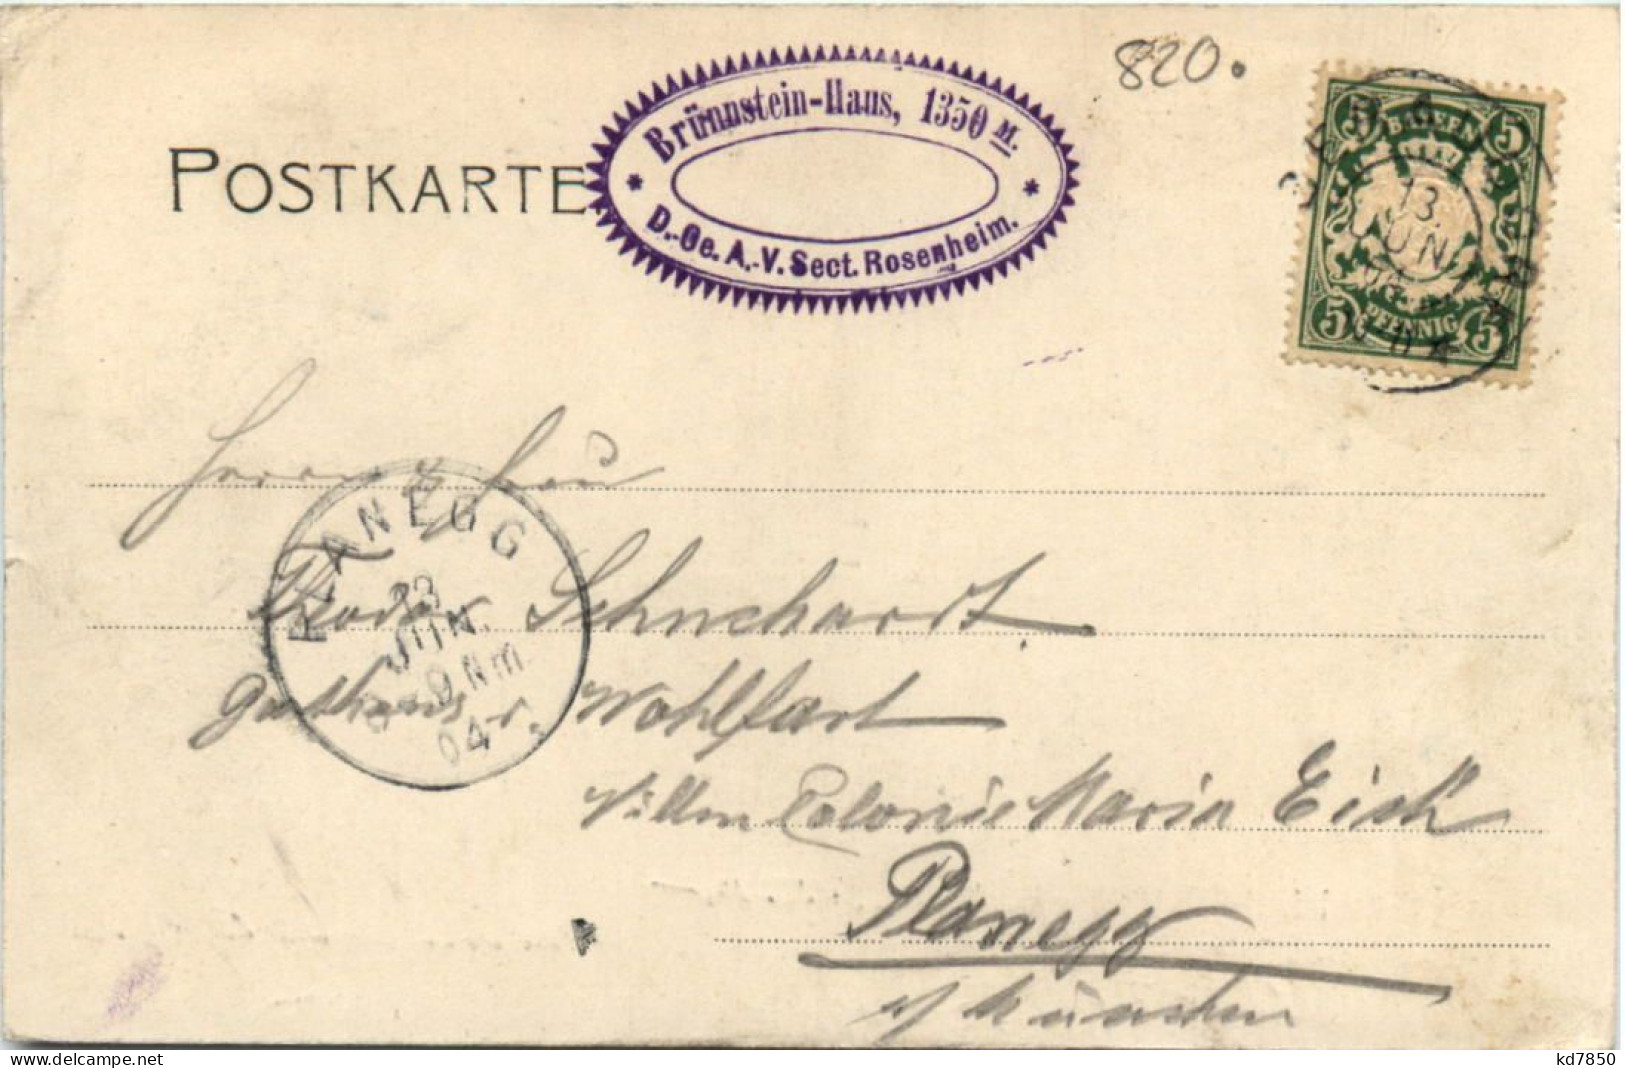 820.
POSTKARTE
Brünnstein-Haus, 1350 M.
* *
D.-Oe. A.-V. Sect. Rosenheim.
5 BAYERN 5
5 PFENNIG 5
13.
JUN
Herrn & Frau
PLANEGG
JUN.
8-9 NM
04
Schuchardt
Gasthaus z. Wohlfart
Villen Colonie Maria Eich
Planegg
b/ München
www.delcampe.net
kd7850